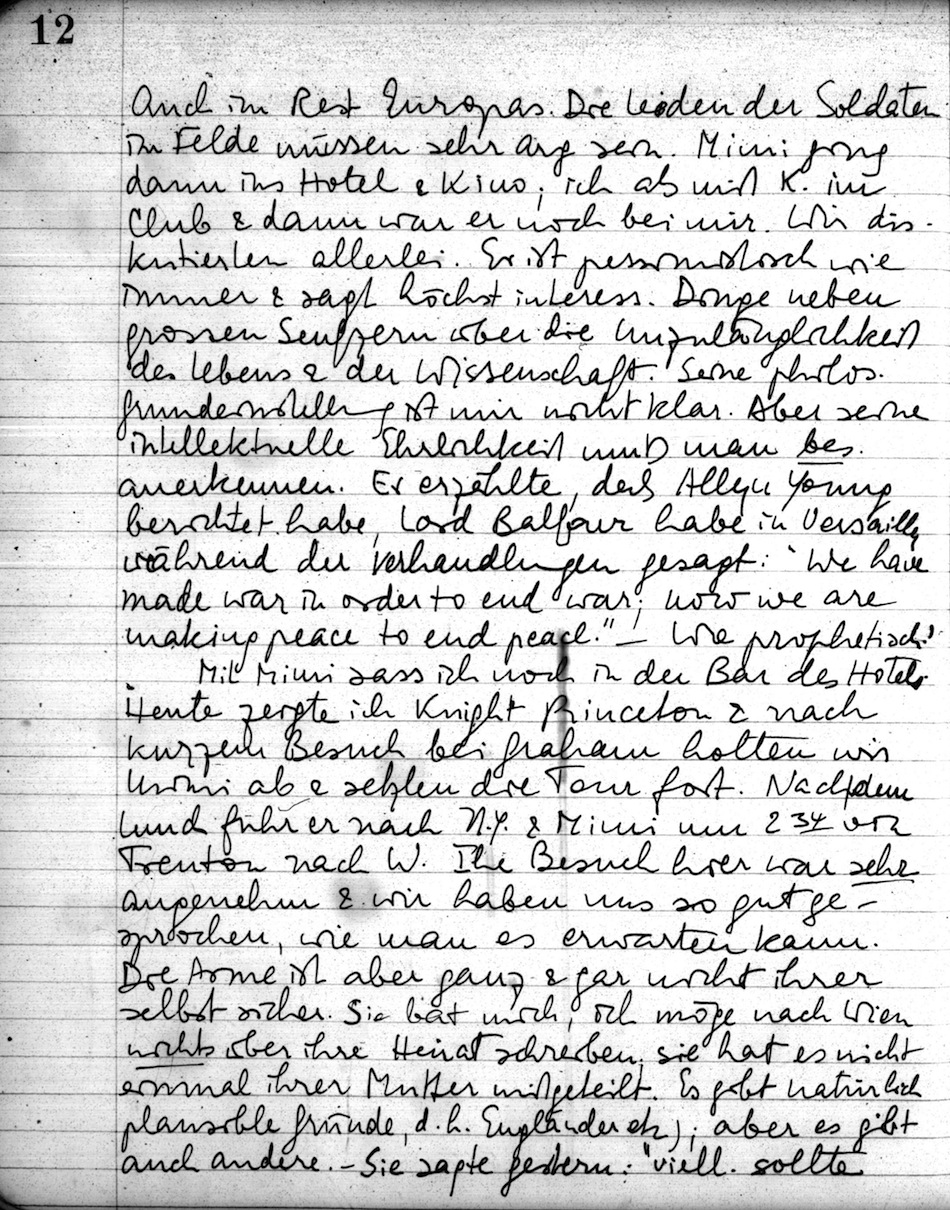 12
Auch im Rest Europas. Die Leiden der Soldaten
im Felde müssen sehr arg sein. Mimi ging
dann ins Hotel & Kino; ich ab mit K. im
Club & dann war er noch bei mir. Wir dis-
kutierten allerlei. Er ist pessimistisch wie
immer & sagt höchst interess. Dinge neben
grossen Seufzern über die Unzulänglichkeit
des Lebens & der Wissenschaft. Seine philos.
Grundeinstellung ist mir nicht klar. Aber seine
intellektuelle Ehrlichkeit muß man bes.
anerkennen. Er erzählte, daß Allyn Young
berichtet habe, Lord Balfour habe in Versailles
während der Verhandlungen gesagt: "We have
made war in order to end war; now we are
making peace to end peace." – Wie prophetisch!
Mit Mimi sass ich noch in der Bar des Hotels.
Heute zeigte ich Knight Princeton & nach
kurzem Besuch bei Graham holten wir
Mimi ab & setzten die Tour fort. Nach dem
Lunch fuhr er nach N.Y. & Mimi um 2 34 von
Trenton nach W. Ihr Besuch hier war sehr
angenehm & wir haben uns so gut ge-
sprochen, wie man es erwarten kann.
Die Arme ist aber ganz & gar nicht ihrer
selbst sicher. Sie bat mich, ich möge nach Wien
nichts über ihre Heirat schreiben; sie hat es nicht
einmal ihrer Mutter mitgeteilt. Es gibt natürlich
plausible Gründe, d.h. Engländer etc); aber es gibt
auch andere. – Sie sagte gestern: "viell. sollte